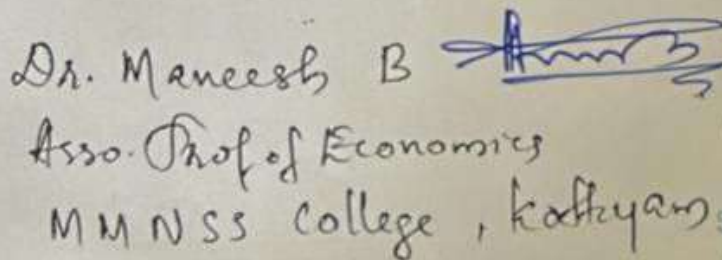 Dr. Maneesh B
Asso. Prof. of Economics
MMNSS College, Kottiyam.